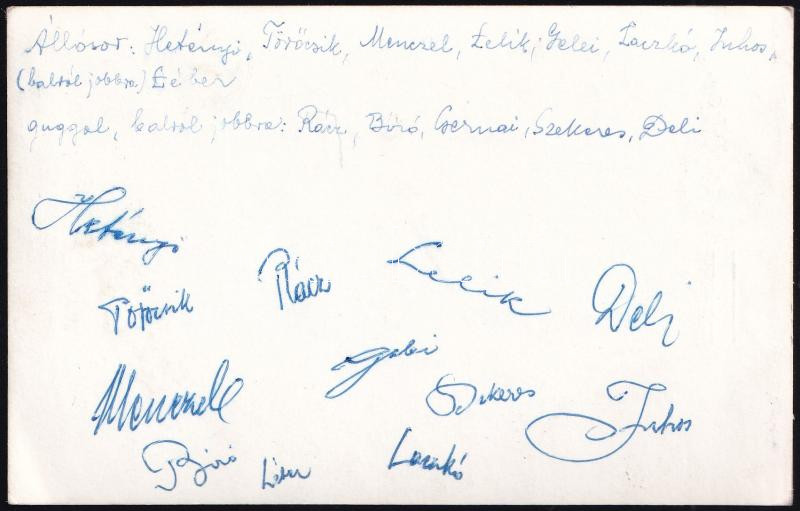 Állósor: Hetényi, Törőcsik, Menczel, Lelik, Gelei, Laczkó, Juhos,
(balról jobbra) Léber
guggol, balról jobbra: Rácz, Bíró, Csernai, Szekeres, Deli
Hetényi
Törőcsik Rácz Lelik Deli
Menczel Gelei Szekeres Juhos
Bíró Léber Laczkó